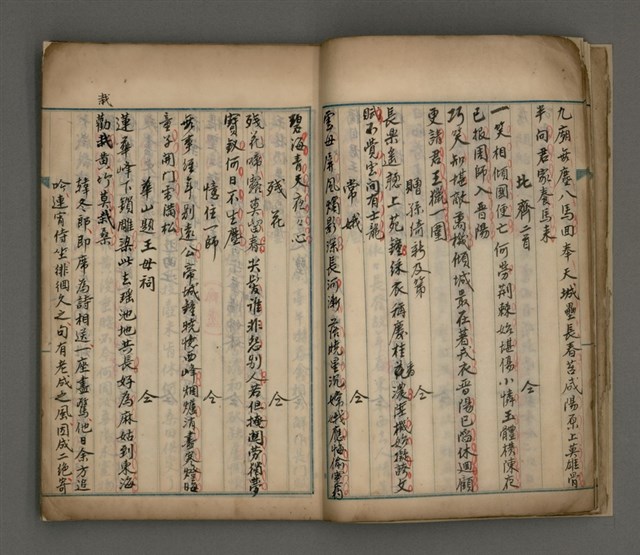 九廟無塵八馬回奉天城壘長春苔咸陽原上英雄骨
半向君家養馬來
北齊二首 仝
一笑相傾國便亡何勞荊棘始堪傷小憐玉體橫陳夜
已报周師入晉陽
巧笑知堪敵萬機傾城最在著戎衣晉陽已陷休迴顧
更請君王獵一圍
贈孫倚新及第 仝
長樂遙聽上苑鐘綵衣稱慶桂香濃陸機始擬誇文
賦不覺雲間有士龍
常娥 仝
雲母屏風燭影深長河漸落曉星沉嫦娥應悔偷靈药
碧海青天夜々心
殘花 仝
殘花啼露莫留春尖髮誰非怨別人若但掩關勞獨夢
寶釵何日不生塵
憶住一師 仝
無事經年別遠公帝城鐘曉憶西峰烟爐消盡寒燈晦
童子開門雪滿松
華山題王母祠 仝
蓮華峰下鎖雕梁此去瑤池地共長好為麻姑到東海
勸栽黄竹莫栽桑
栽
韓冬郎即席為詩相送一座盡驚他日余方追
吟連宵侍坐徘徊久之句有老成之風因成二絕寄